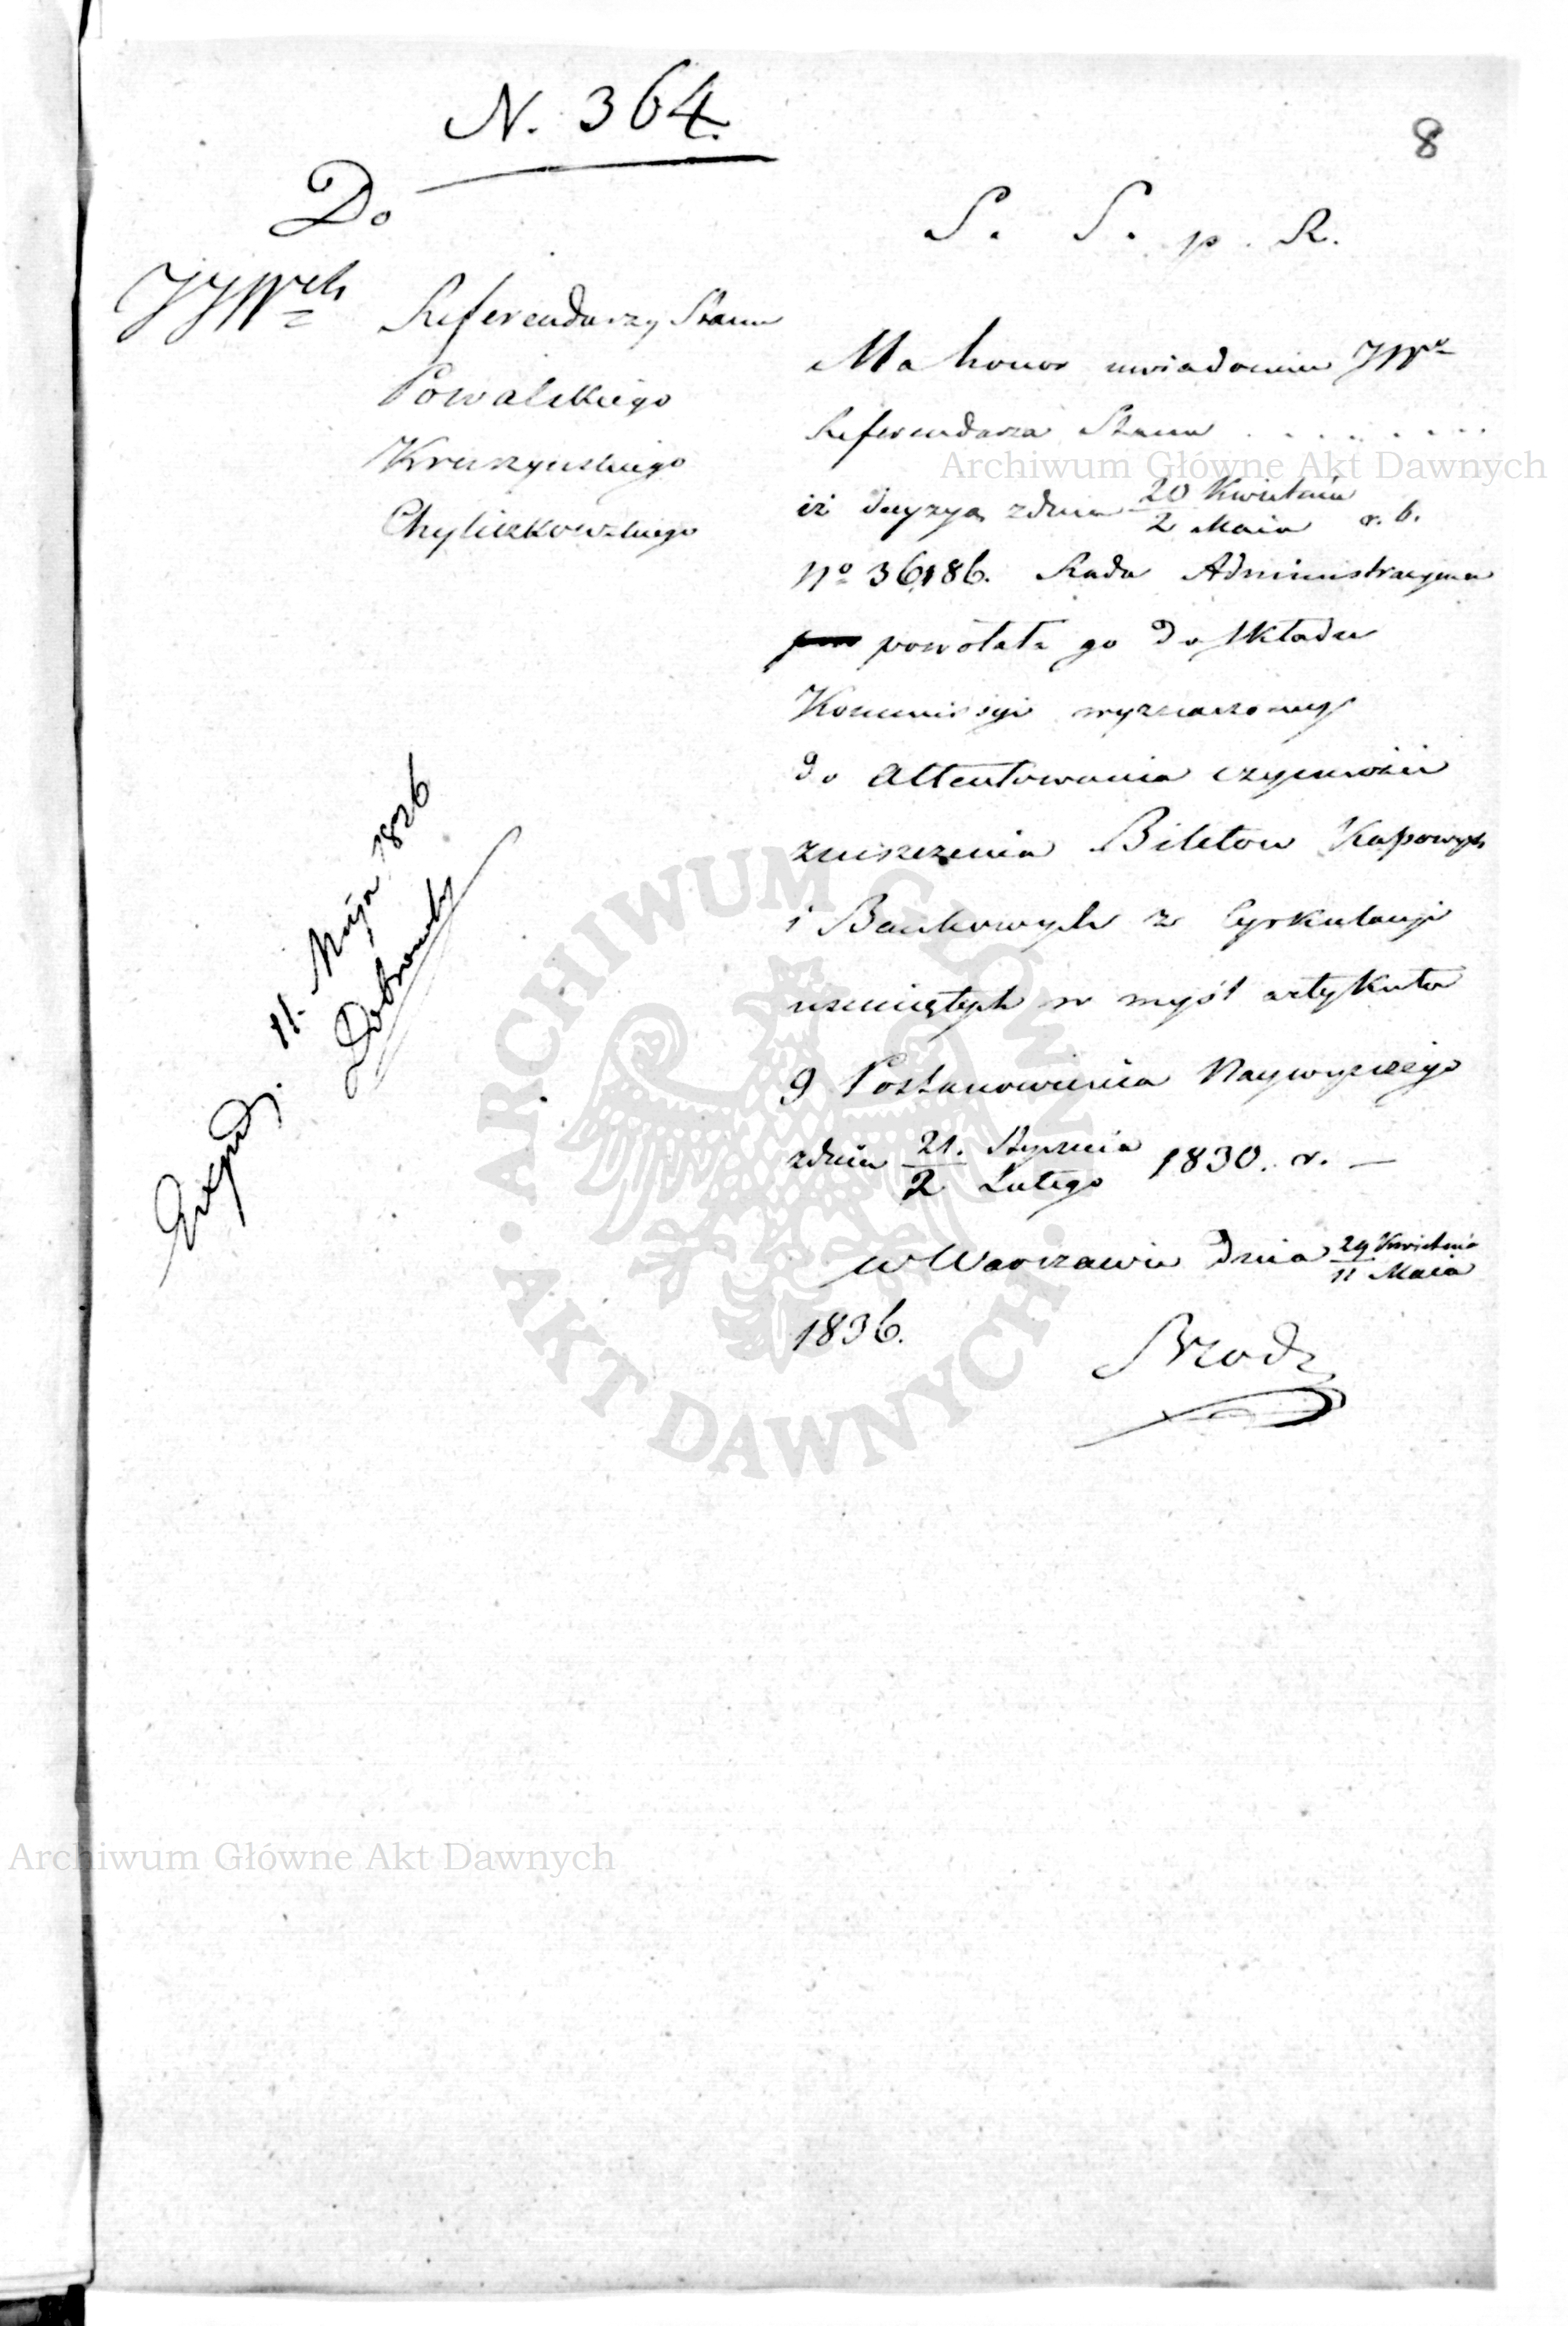 N. 364.
8
Do
JJWch Referendarzy Stanu
Powalskiego
Kruszyńskiego
Chyliczkowskiego
S. S. p. R.
Ma honor uwiadomić JWo
Referendarza Stanu . . . . . . . .
iż decyzyą z dnia 20 Kwietnia / 2 Maia r. b.
No 36186. Rada Administracyjna
powołała go do składu
Kommissyi wyznaczoney
do attentowania czynności
zniszczenia Biletow Kassowych
i Bankowych z Cyrkulacyi
usuniętych w myśl artykułu
9 Postanowienia Naywyższego
z dnia 21. Stycznia / 2 Lutego 1830. r. —
w Warszawie dnia 29 Kwietnia / 11 Maia
1836.
Brodz
Exped. 11. Maja 1836
Dobrowolski
Archiwum Główne Akt Dawnych
ARCHIWUM GŁÓWNE • AKT DAWNYCH •
Archiwum Główne Akt Dawnych